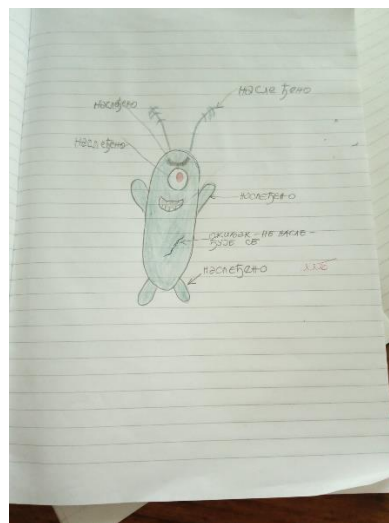 наслеђено
наслеђено
наслеђено
наслеђено
ожиљак - не насле-
ђује се
наслеђено